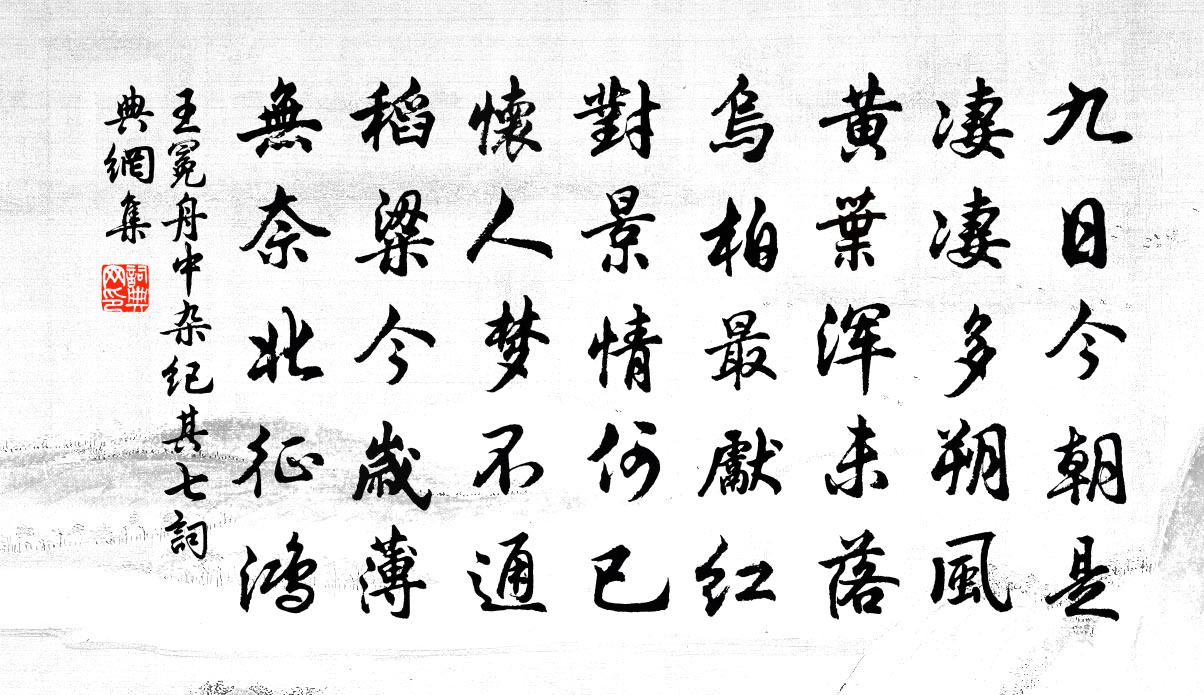 九日今朝是
淒淒多朔風
黃葉浑未落
烏柏最獻红
對景情何已
懷人梦不通
稻梁今歲薄
無奈北征鸿
王冕舟中杂纪其七詞
典網集
詞典网印